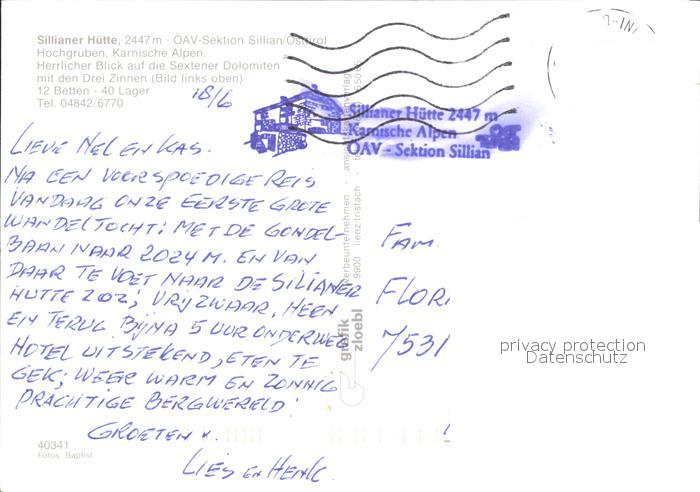 Sillianer Hütte, 2447 m · ÖAV-Sektion Sillian/Osttirol
Hochgruben, Karnische Alpen.
Herrlicher Blick auf die Sextener Dolomiten
mit den Drei Zinnen (Bild links oben)
12 Betten - 40 Lager
Tel. 04842/6770
18/6
Sillianer Hütte 2447 m
Karnische Alpen
ÖAV - Sektion Sillian
LIEVE NEL EN KAS.
NA EEN VOORSPOEDIGE REIS
VANDAAG ONZE EERSTE GROTE
WANDELTOCHT: MET DE GONDEL-
BAAN NAAR 2024 M. EN VAN
DAAR TE VOET NAAR DE SILIANER
HUTTE VRIJ ZWAAR, HEEN
EN TERUG BIJNA 5 UUR ONDERWEG
HOTEL UITSTEKEND, ETEN TE
GEK; WEER WARM EN ZONNIG
PRACHTIGE BERGWERELD!
GROETEN v.
LIES EN HENK.
FAM.
FLORI
7531
privacy protection
Datenschutz
grafik
zloebl
werbeunternehmen
9900 lienz/tristach
40341
Fotos: Baptist